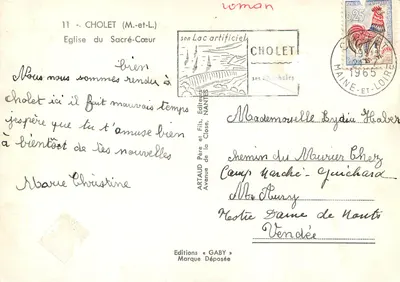 roman
11 - CHOLET (M.-et-L.)
Eglise du Sacré-Cœur
bien
Nous nous sommes rendu à
cholet ici il fait mauvais temps
j'espère que tu t'amuse bien
à bientôt de tes nouvelles
Marie Christine
son Lac artificiel
CHOLET
1965
MAINE-et-LOIRE
ARTAUD Père et Fils, Editeurs
Avenue de la Close, NANTES
Mademoiselle Lydie
chemin du Meurier Chez
Camp Marché Guichard
Mr
Notre Dame de Monts
Vendée
Editions « GABY »
Marque Déposée